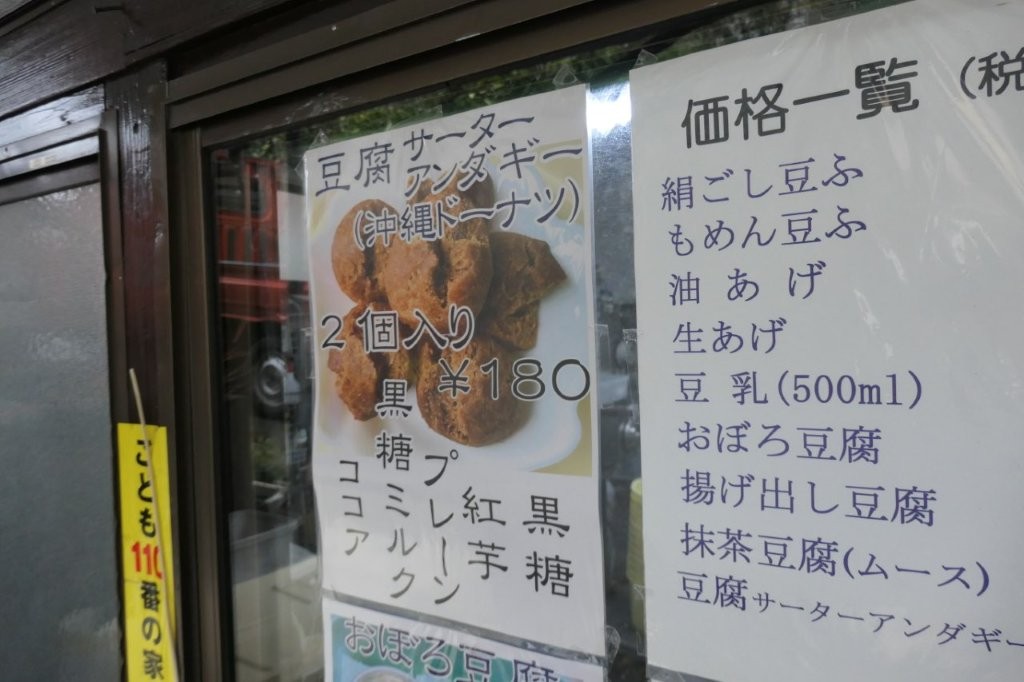 豆腐サーターアンダギー
(沖縄ドーナツ)
2個入り
¥180
黒糖
紅芋
プレーン
黒糖ミルク
ココア
おぼろ豆腐
価格一覧(税
絹ごし豆ふ
もめん豆ふ
油あげ
生あげ
豆乳(500ml)
おぼろ豆腐
揚げ出し豆腐
抹茶豆腐(ムース)
豆腐サーターアンダギー
こども110番の家